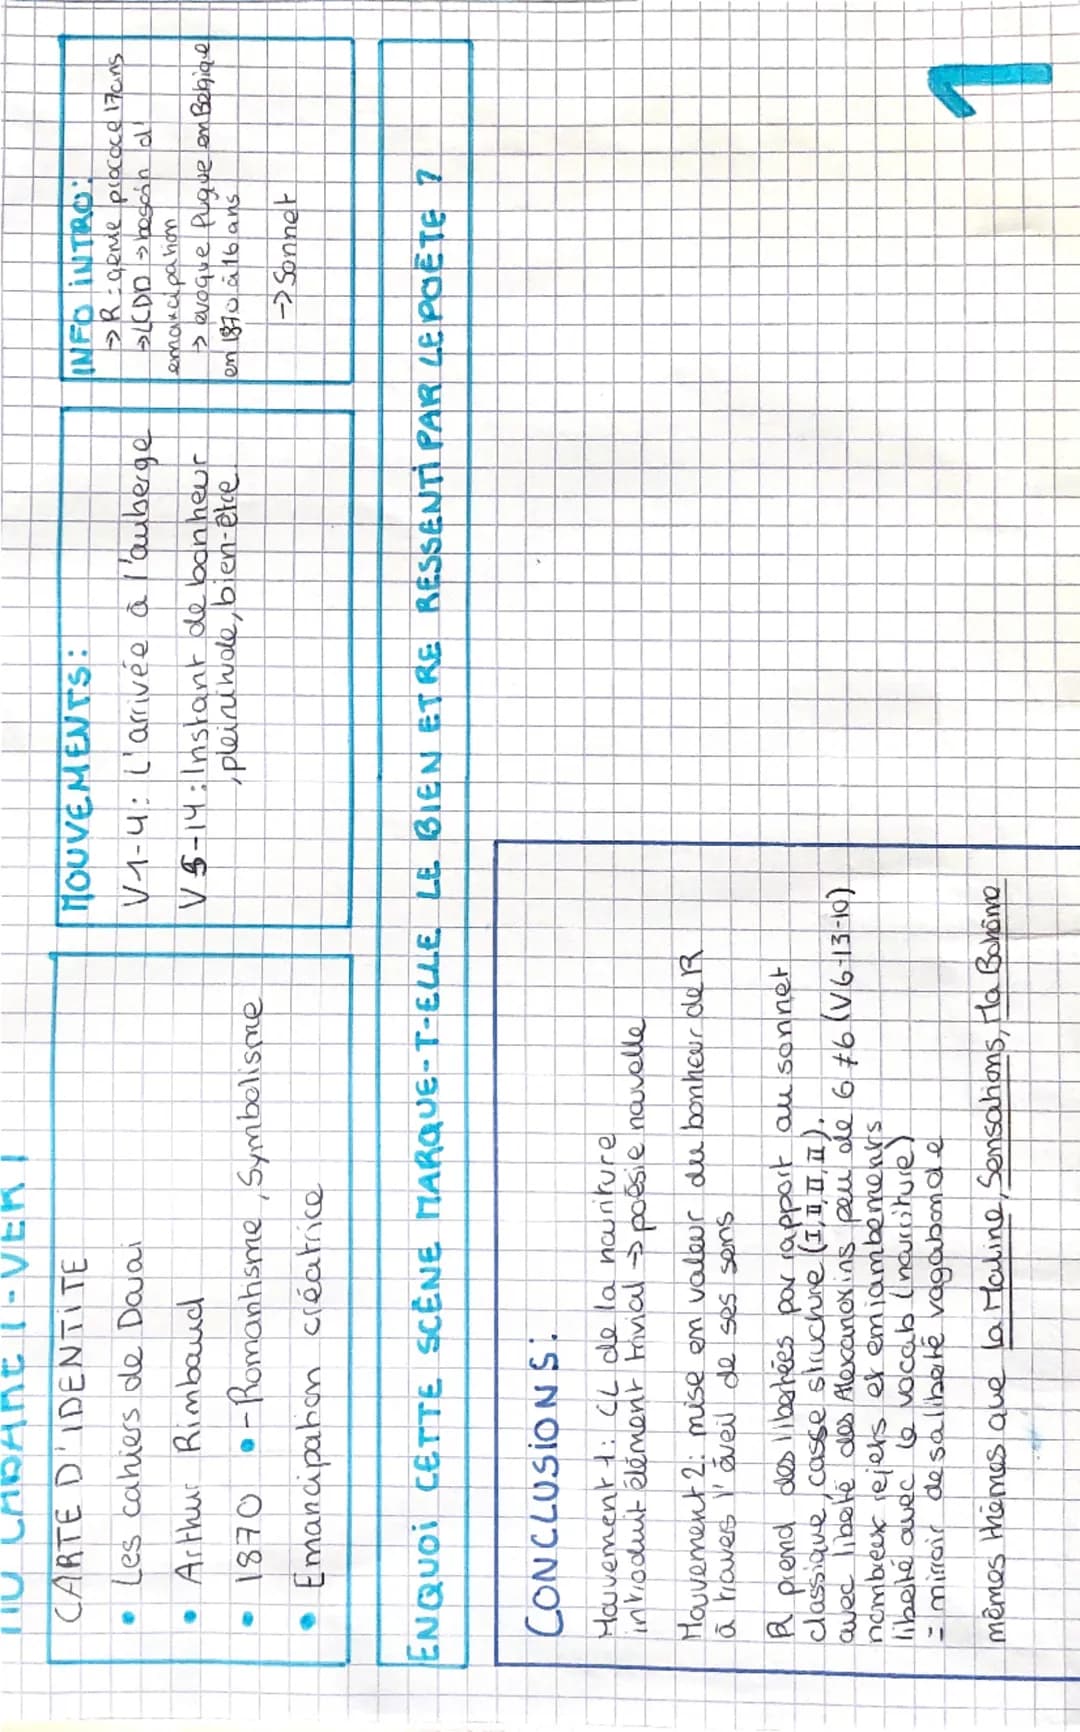 AU CABARET-VERT
CARTE D'IDENTITE
• Les cahiers de Douai
• Arthur Rimbaud
• 1870 • -Romantisme, Symbolisme
• Emancipation créatrice
MOUVEMENTS:
V1-4: L'arrivée à l'auberge
V5-14: Instant de bonheur
, pleinitude, bien-être
INFO INTRO:
→ R: génie précoce 17ans
→ LCDD → besoin d'
emancipation
→ evoque fugue en Belgique
en 1870 à 16 ans
→ Sonnet
ENQUOI CETTE SCÈNE MARQUE-T-ELLE LE BIEN ETRE RESSENTI PAR LE POÈTE ?
CONCLUSIONS:
Mouvement 1: CL de la nourriture
introduit élément trivial → poésie nouvelle
Mouvement 2: mise en valeur du bonheur de R
à travers l'éveil de ses sens
R prend des libertées par rapport au sonnet
classique, casse structure (I, II, II, II).
avec liberté des Alexandrins peu de 6≠6 (V6-13-10)
nombreux rejets et emjambements
liberté avec le vocab (nourriture)
= mirroir de sa liberté vagabonde
mêmes thèmes que La Maline, Sensations, Ma Bohême
1